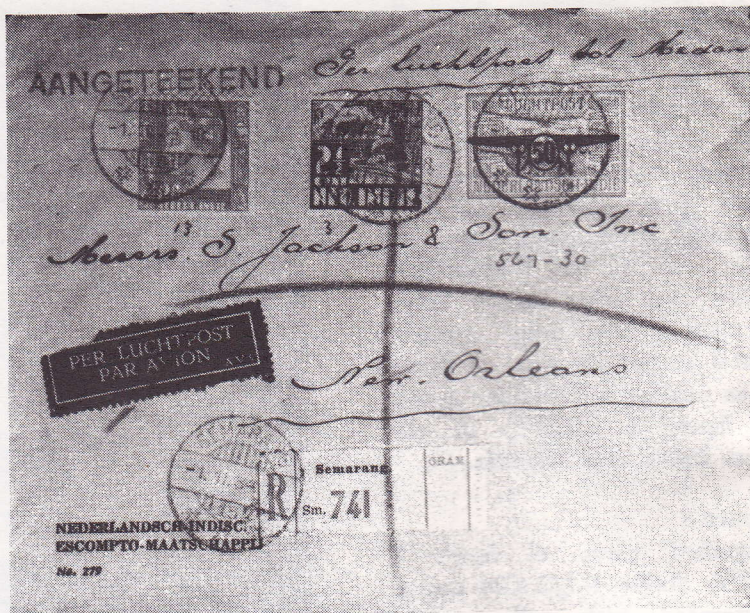 AANGETEEKEND
Per luchtpost tot Medan
LUCHTPOST
50
Messrs. S. Jackson & Son. Inc
13 3
567-30
PER LUCHTPOST
PAR AVION
New. Orleans
Semarang
GRAM
R
Sm. 741
NEDERLANDSCH INDISC
ESCOMPTO-MAATSCHAPPIJ
No. 279